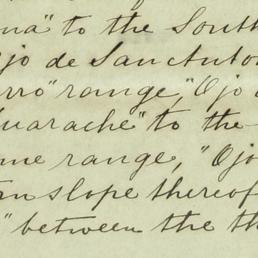 ona" to the South
jo de San Anton
erro" range, "Ojo d
uarache" to the
me range, "Ojo
rn slope thereof
" between the th